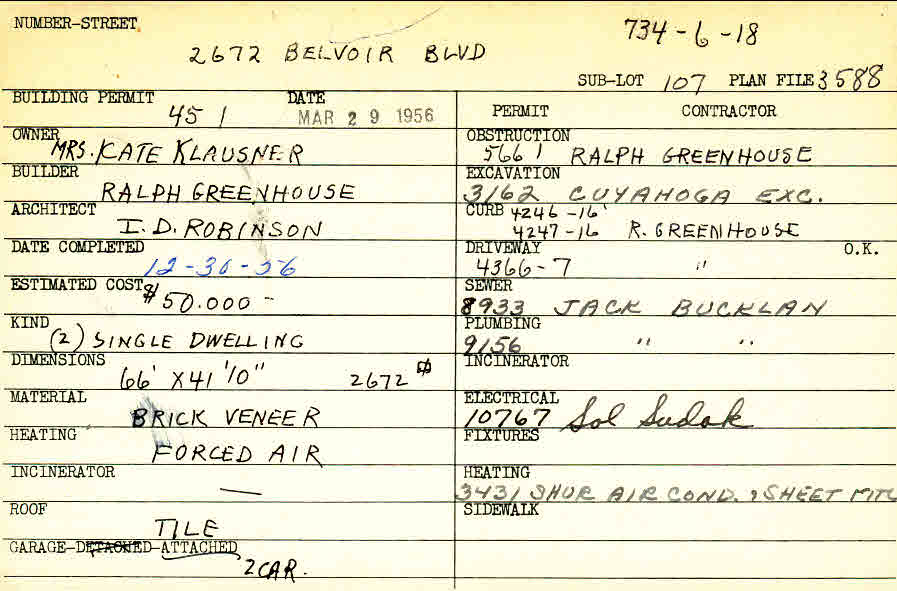 NUMBER-STREET 734-6-18
2672 BELVOIR BLVD
SUB-LOT 107 PLAN FILE 3588
BUILDING PERMIT 451 DATE MAR 29 1956
OWNER MRS. KATE KLAUSNER
BUILDER RALPH GREENHOUSE
ARCHITECT I.D. ROBINSON
DATE COMPLETED 12-30-56
ESTIMATED COST $50.000-
KIND (2) SINGLE DWELLING
DIMENSIONS 66' X41'10" 2672 ⌀
MATERIAL BRICK VENEER
HEATING FORCED AIR
INCINERATOR —
ROOF TILE
GARAGE-DETACHED-ATTACHED
2 CAR.
PERMIT CONTRACTOR
OBSTRUCTION 5661 RALPH GREENHOUSE
EXCAVATION 3162 CUYAHOGA EXC.
CURB 4246-16'
4247-16 R. GREENHOUSE
DRIVEWAY O.K.
4366-7 "
SEWER 8933 JACK BUCKLAN
PLUMBING 9156 " "
INCINERATOR
ELECTRICAL 10767 Sol Sudak
FIXTURES
HEATING 3431 SHUR AIR COND. & SHEET MTL
SIDEWALK